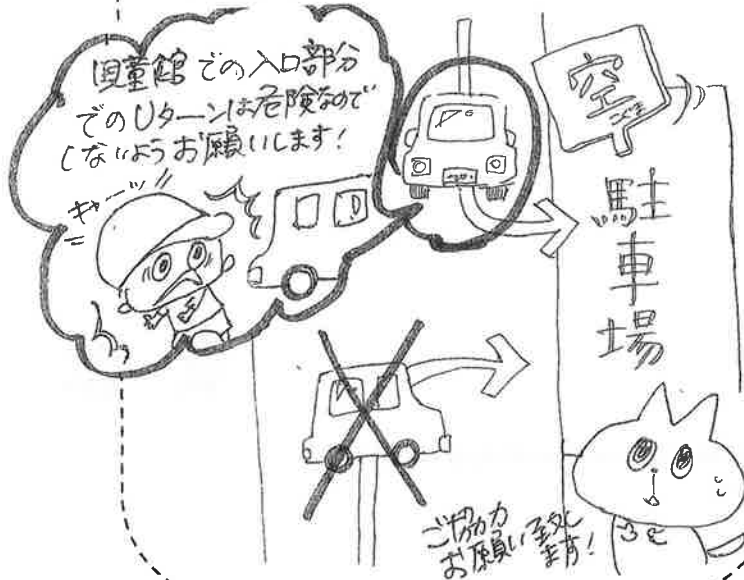 児童館での入口部分
でのUターンは危険なので
しないようお願いします!
キャーッ!!
空
駐車場
ご協力
お願い致し
ます!